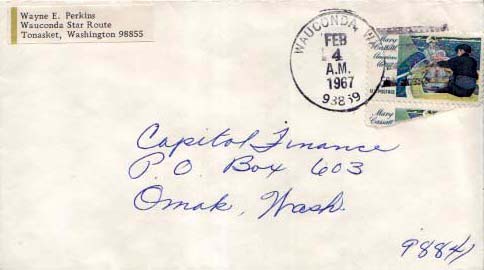 Wayne E. Perkins
Wauconda Star Route
Tonasket, Washington 98855
WAUCONDA, W
FEB
4
A.M.
1967
98859
Mary
Cassatt
American
U.S. POSTAGE
Mary
Cassatt
Capitol Finance
P.O. Box 603
Omak, Wash.
98841